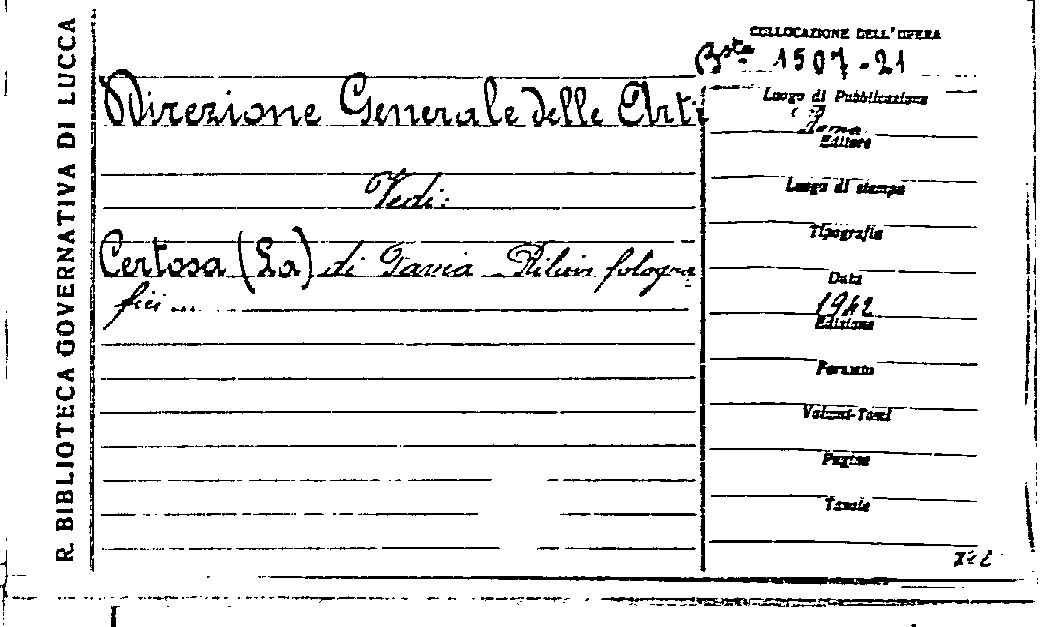 R. BIBLIOTECA GOVERNATIVA DI LUCCA
COLLOCAZIONE DELL'OPERA
Bsta 1507-21
Direzione Generale delle Arti
Vedi:
Certosa (La) di Pavia - Rilievi fotogra
fici ...
Luogo di Pubblicazione
Roma
Editore
Luogo di stampa
Tipografia
Data
1942
Edizione
Formato
Volumi-Tomi
Pagine
Tavole